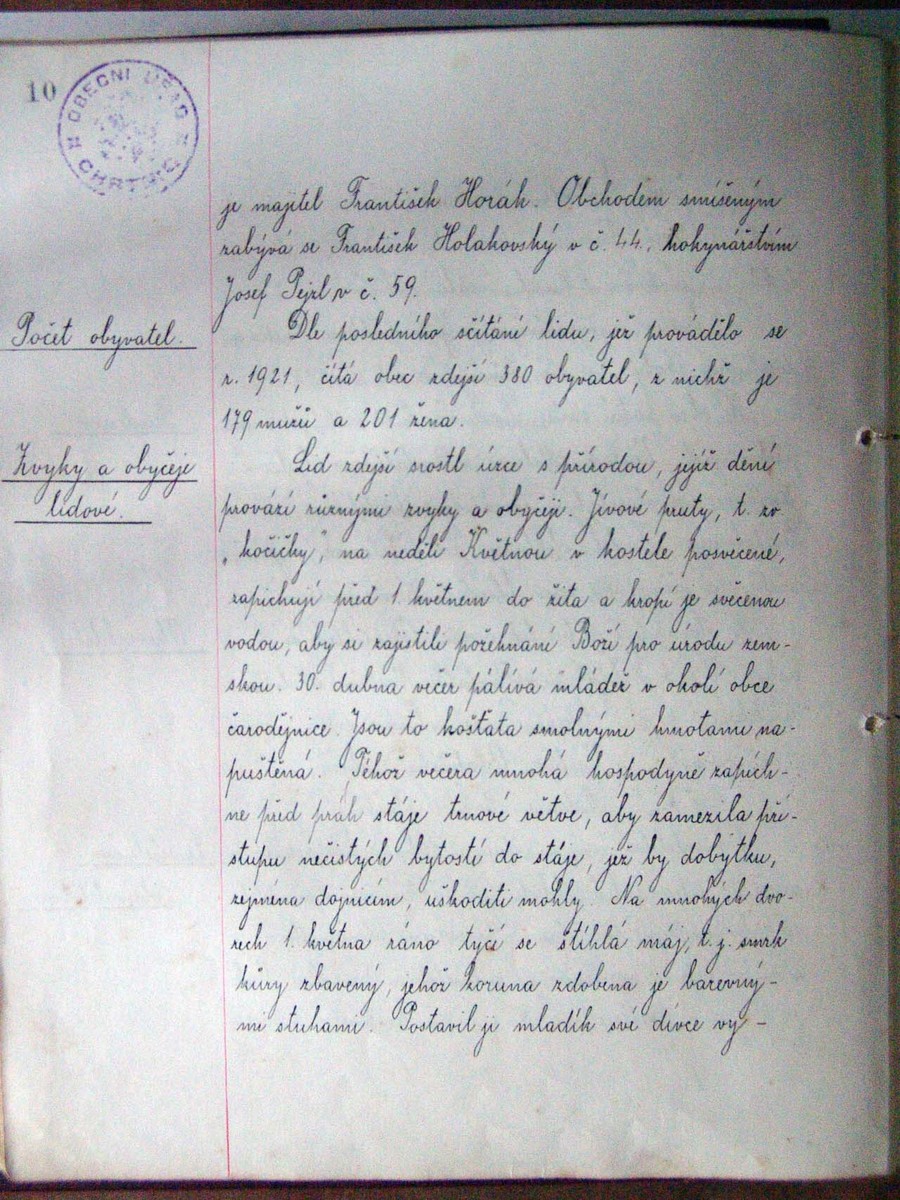 10
OBECNÍ ÚŘAD
je majitel František Horák. Obchodem smíšeným
zabývá se František Holakovský v č. 44., hokynářstvím
Josef Pejzl v č. 59.
Počet obyvatel.
Dle posledního sčítání lidu, jež provádělo se
r. 1921, čítá obec zdejší 380 obyvatel, z nichž je
179 mužů a 201 žena.
Zvyky a obyčeje
lidové.
Lid zdejší srostl úzce s přírodou, jejíž dění
provází různými zvyky a obyčeji. Jívové pruty, t. zv
„kočičky", na neděli Květnou v kostele posvěcené,
zapichují před 1. květnem do žita a kropí je svěcenou
vodou, aby si zajistili požehnání Boží pro úrodu zem-
skou. 30. dubna večer pálívá mládež v okolí obce
čarodějnice. Jsou to košťata smolnými hmotami na-
puštěná. Téhož večera mnohá hospodyně zapích-
ne před práh stáje trnové větve, aby zamezila pří-
stupu nečistých bytostí do stáje, jež by dobytku,
zejména dojnicím, uškoditi mohly. Na mnohých dvo-
rech 1. května ráno tyčí se štíhlá máj, t. j. smrk
kůry zbavený, jehož koruna zdobena je barevný-
mi stuhami. Postavil ji mladík své dívce vy-